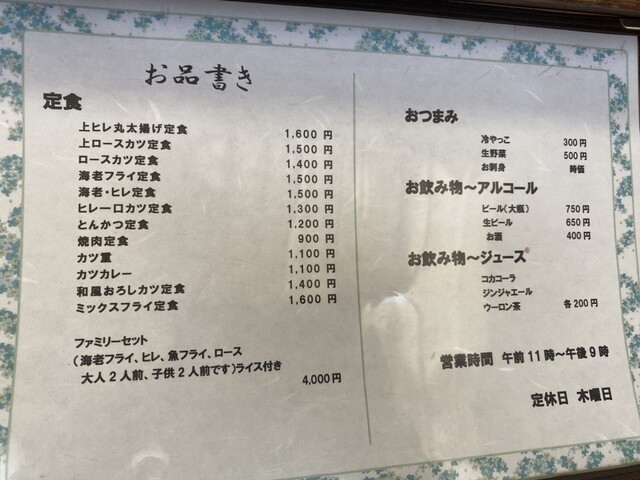 お品書き
定食
上ヒレ丸太揚げ定食 1,600 円
上ロースカツ定食 1,500 円
ロースカツ定食 1,400 円
海老フライ定食 1,500 円
海老・ヒレ定食 1,500 円
ヒレ一口カツ定食 1,300 円
とんかつ定食 1,200 円
焼肉定食 900 円
カツ重 1,100 円
カツカレー 1,100 円
和風おろしカツ定食 1,400 円
ミックスフライ定食 1,600 円
ファミリーセット
（海老フライ、ヒレ、魚フライ、ロース
大人２人前、子供２人前です）ライス付き
4,000円
おつまみ
冷やっこ 300円
生野菜 500円
お刺身 時価
お飲み物～アルコール
ビール（大瓶） 750円
生ビール 650円
お酒 400円
お飲み物～ジュース
コカコーラ
ジンジャエール
ウーロン茶 各200円
営業時間 午前11時～午後9時
定休日 木曜日